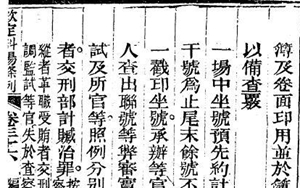 簿及卷面印用並於簿
以備查覈
一場中坐號預先約計
干號為止尾末餘號不
一戳印坐號承辦等官
人查出聯號等弊審實
試及所官等照例分別
者交刑部計贓治罪按
縱者革職受賄者交刑
調監試等官失於查察
欽定科場條例 卷三十六